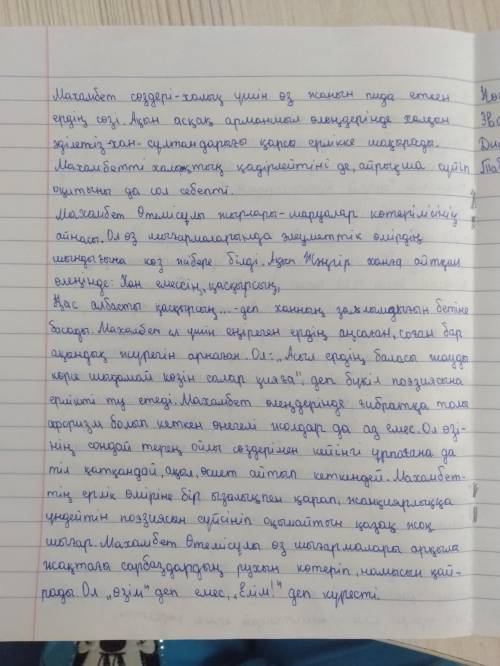 Махамбет сөздері-халық үшін өз жанын пида еткен
ердің сөзі. Ақын асқақ арманшыл өлеңдерінде халқын
әділетіз-хан-сұлтандарды қарсы ерлікке шақырады.
Махамбетті халықтың қадірлейтіні де, айрықша сүйіп
оқитыны да сол себепті.
Махамбет Өтемісұлы жырлары-шаруалар көтерілісінің
айнасы. Ол өз шығармаларында әлеуметтік өмірдің
шындығына көз жібере білді. Ақын Жәңгір ханға айтқан
өлеңінде: Хан емессің, қасқырсың,
Қас албасты қасқырсың...-деп ханның залымдығын бетіне
басады. Махамбет ел үшін еңіреген ердің аңсаған, соған бар
ақындық жүрегін арнаған. Ол: „Асыл ердің баласы жауды
көріп шыдамай көзін салар қияға", деп бүкіл поэзиясына
ерлікті ту етеді. Махамбет өлеңдерінде ғибратқа толы
афоризм болып кеткен өнегелі жолдар да аз емес. Ол өзі-
нің сондай терең ойлы сөздерімен кейінгі ұрпағына да
тіл қатқандай, ақыл, өсиет айтып кеткендей. Махамбет-
тің ерлік өміріне бір қызығып қарап, жанқиярлыққа
үндейтін поэзиясын сүйсініп оқымайтын қазақ жоқ
шығар. Махамбет Өтемісұлы өз шығармалары арқылы
жақтағы сарбаздардың рухын көтеріп, намысын қай-
рады. Ол „өзім" деп емес, „Елім!" деп күресті.